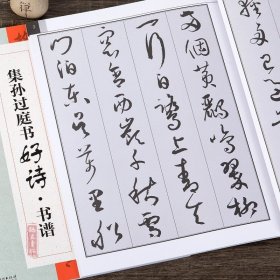 集孙过庭书
好诗·书谱
两個黄鸝鳴翠柳
一行白鷺上青天
窗含西嶺千秋雪
门泊东吴万里船